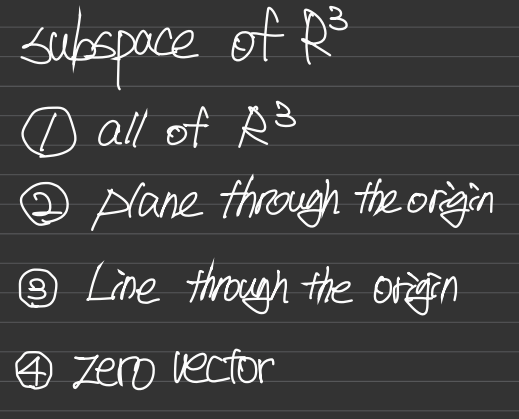 subspace of R³
① all of R³
② plane through the origin
③ Line through the origin
④ zero vector